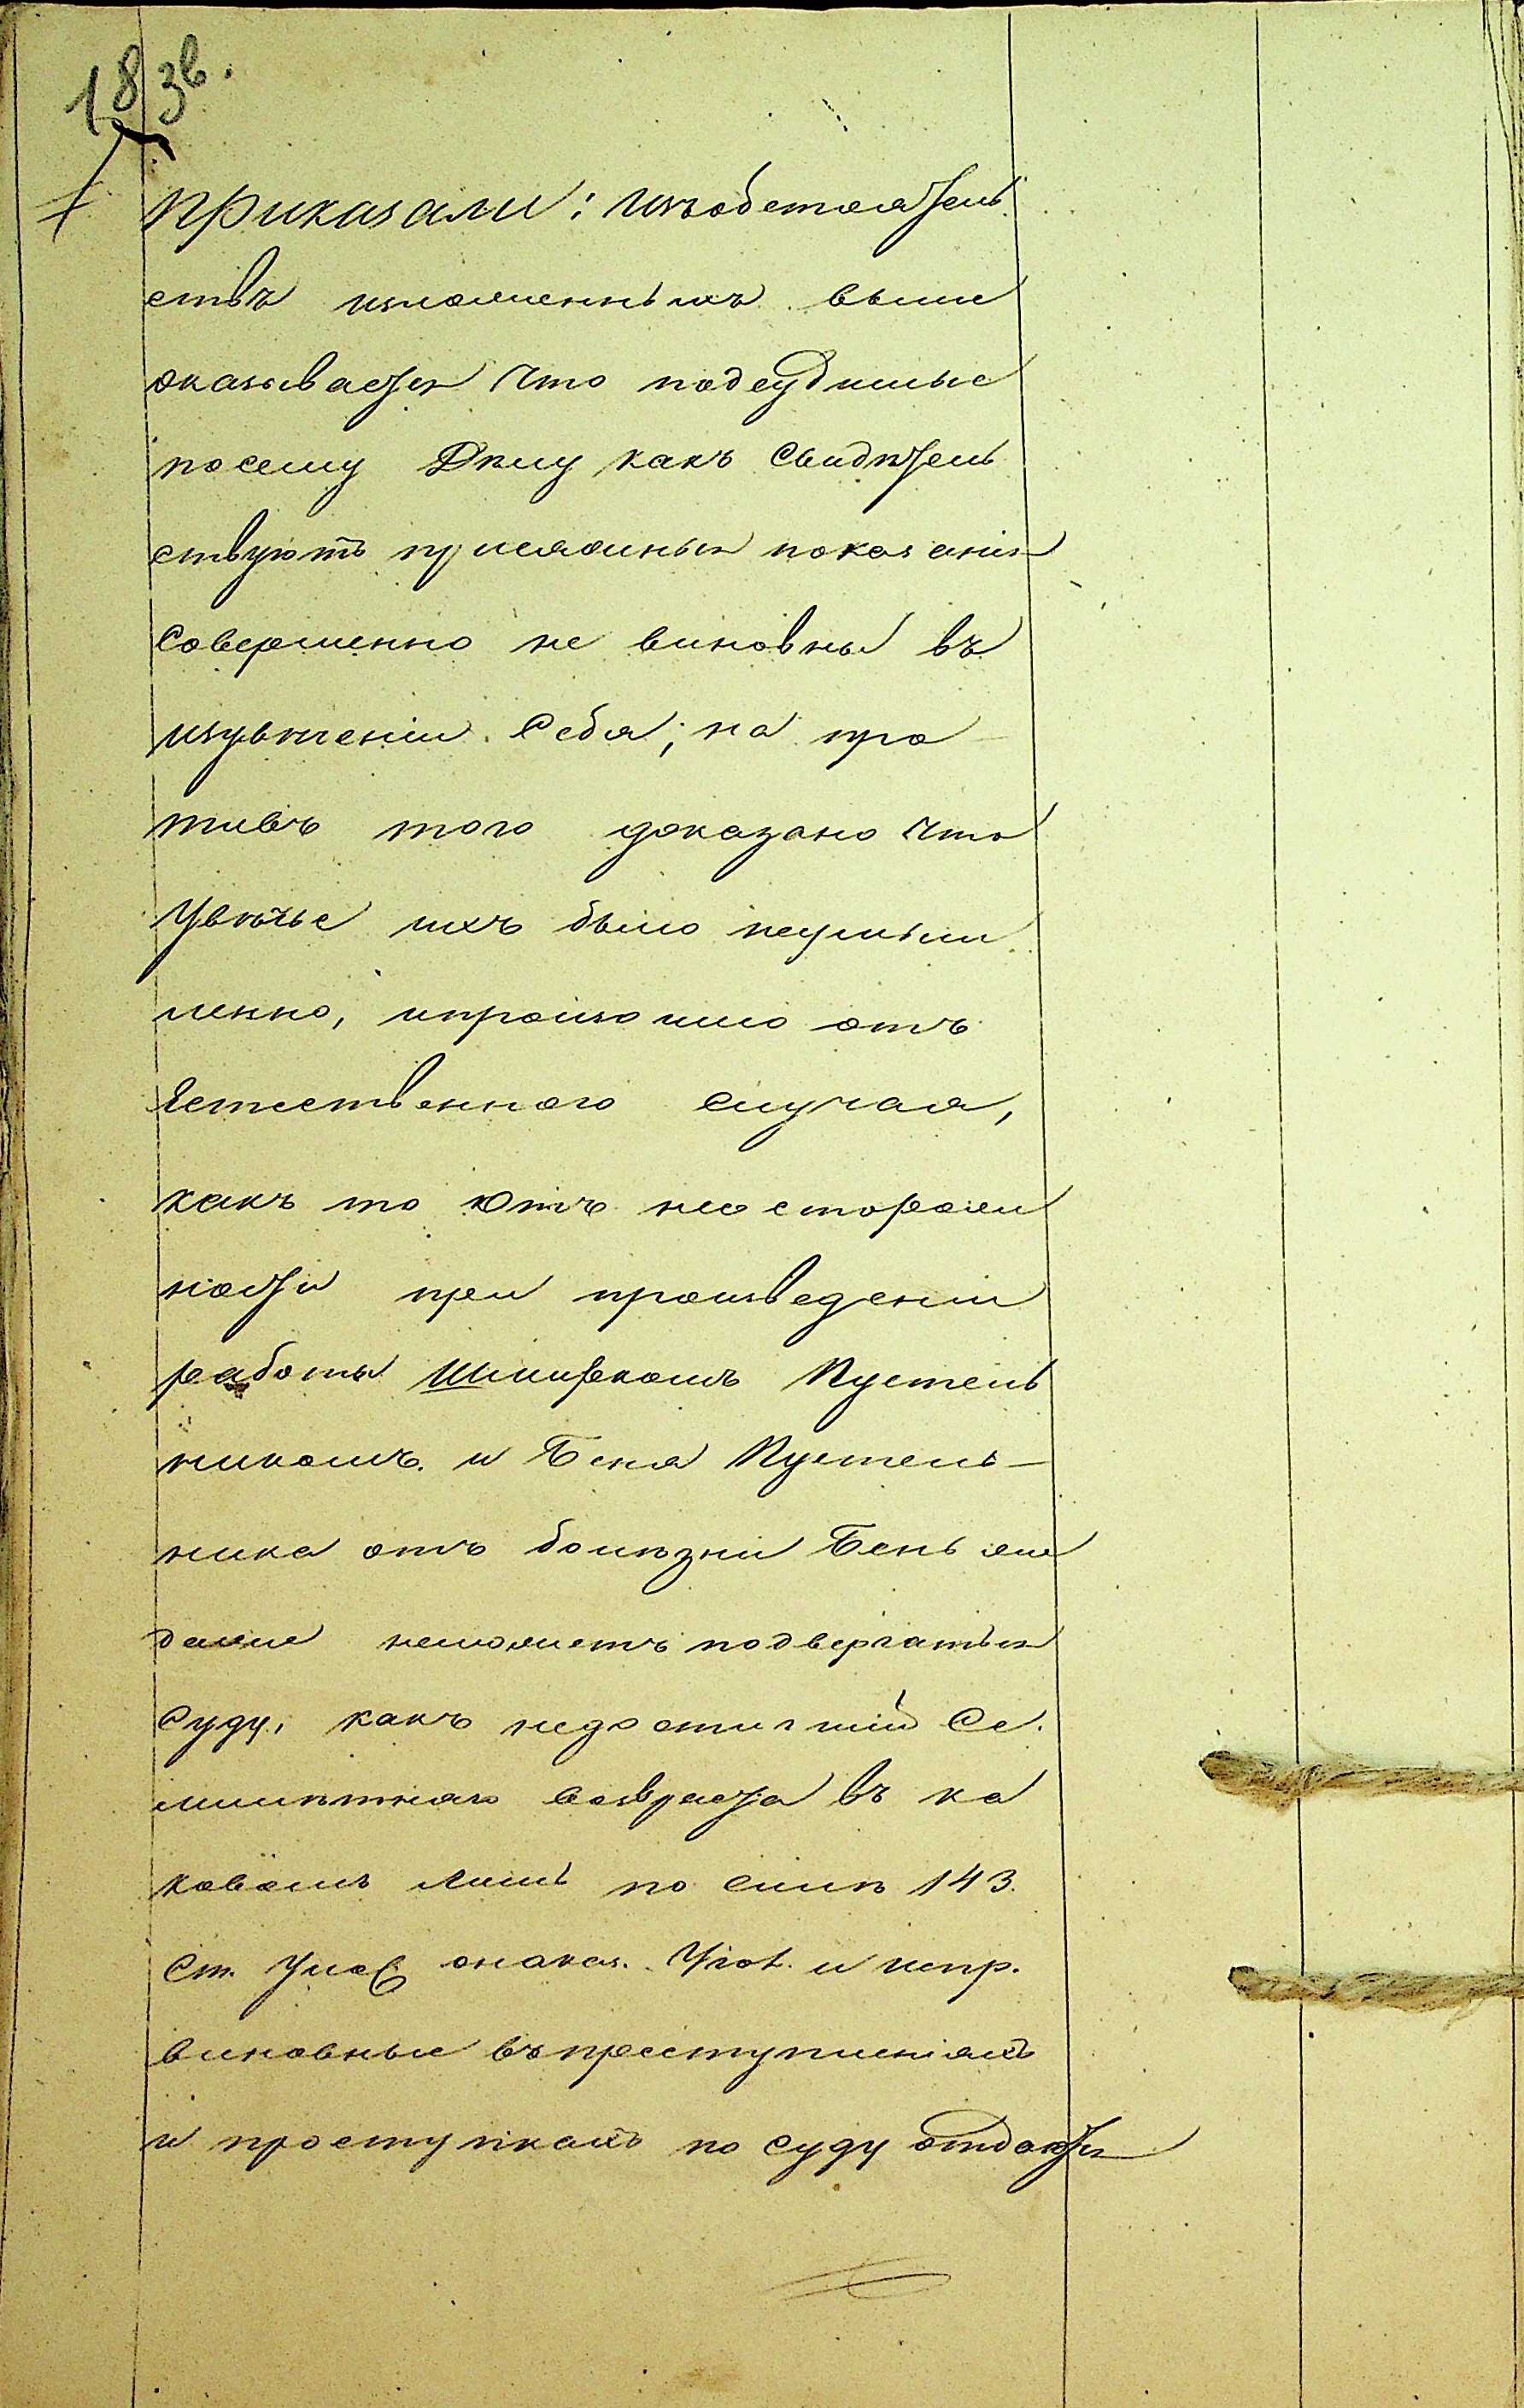 183в.
приказали: изъобстоятель
ствъ изложенныхъ выше
оказывается что подсудимые
посему Дѣлу какъ свидѣтель
ствуютъ присяжныя показанія
совершенно не виновны въ
изувѣченіи себя; на про
тивъ того доказано что
Увѣчье ихъ было неумыш
ленно, ипроизошло отъ
Естественного случая,
какъ то отъ неосторож
ности при произведеніи
работы Шмифкомъ Пустель
никомъ. и Беня Пустель-
ника отъ болѣзни Бень же
далее неможетъ подвергаться
суду, какъ недостигшій се.
милѣтняго возраста въ ка
ковомъ лишь по силѣ 143.
ст. Улож онаказ. Угол. и испр.
виновные въпреступленіяхъ
и проступкахъ по суду отдаются